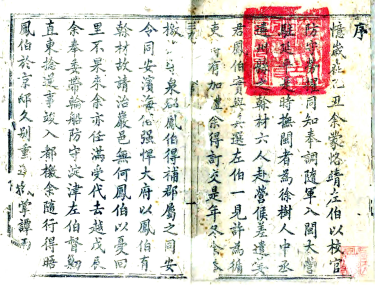 序
憶歲在乙丑余蒙恪靖左伯以校官
防守同知奉調隨軍入閩大營
駐延平是時撫閩者為徐樹人中丞
州縣之幹材六人赴營候差遣吳
君鳳伯實與其選左伯一見許為循
吏有加禮余得訂交是年冬余
東鳳伯得補郡屬之同安
令同安濱海俗强悍大府以鳳伯有
幹材故請治巖邑無何鳳伯以憂回
里不果來余亦任滿受代去越戊辰
余奉委帶輪船防守淀津左伯督勦
直東捻逆事竣入都檄余隨行得晤
鳳伯於京邸久別重掌譚